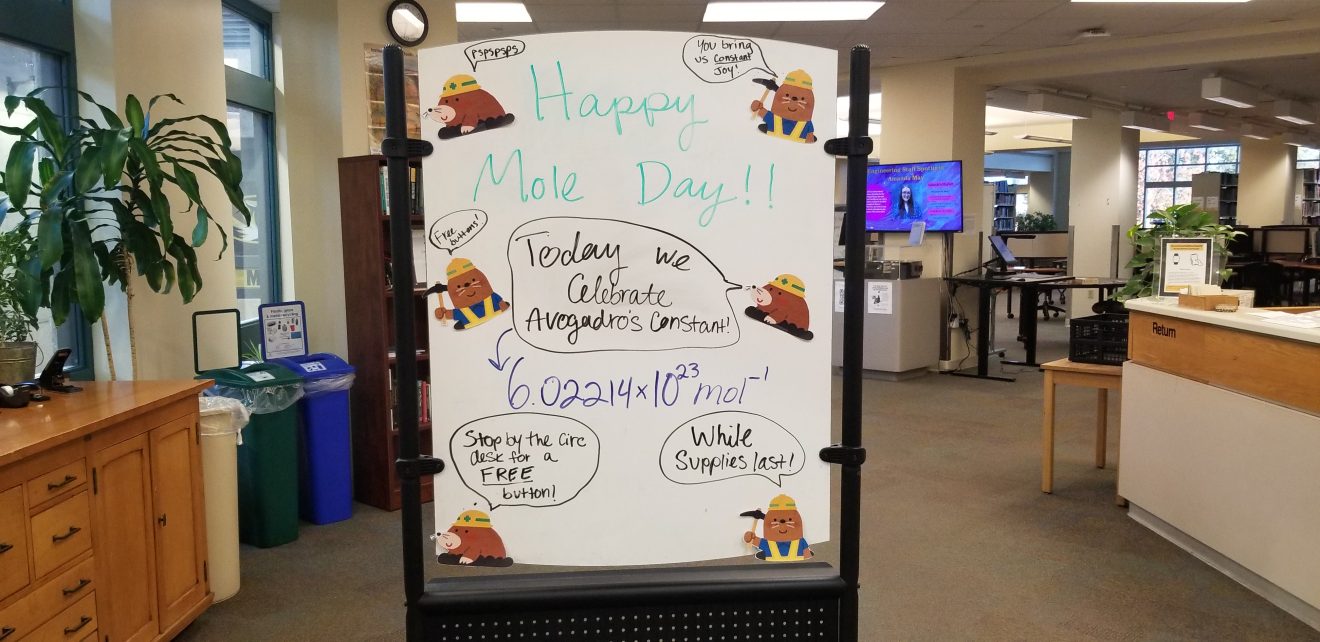 pspspsps
You bring
us constant
Joy!
Happy
Mole Day!!
Free
buttons!
Today we
Celebrate
Avogadro's Constant!
6.02214×10²³ mol⁻¹
Stop by the circ
desk for a
FREE
button!
While
Supplies last!
Engineering Staff Spotlight
Amanda May
Return